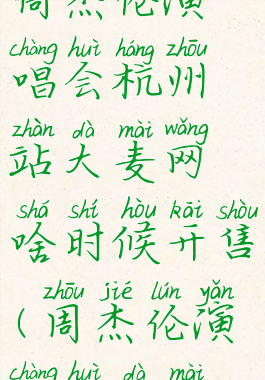 周杰伦演
chàng huì háng zhōu
唱会杭州
zhàn dà mài wǎng
站大麦网
shá shí hòu kāi shòu
啥时候开售
zhōu jié lún yǎn
(周杰伦演
chàng huì dà mài